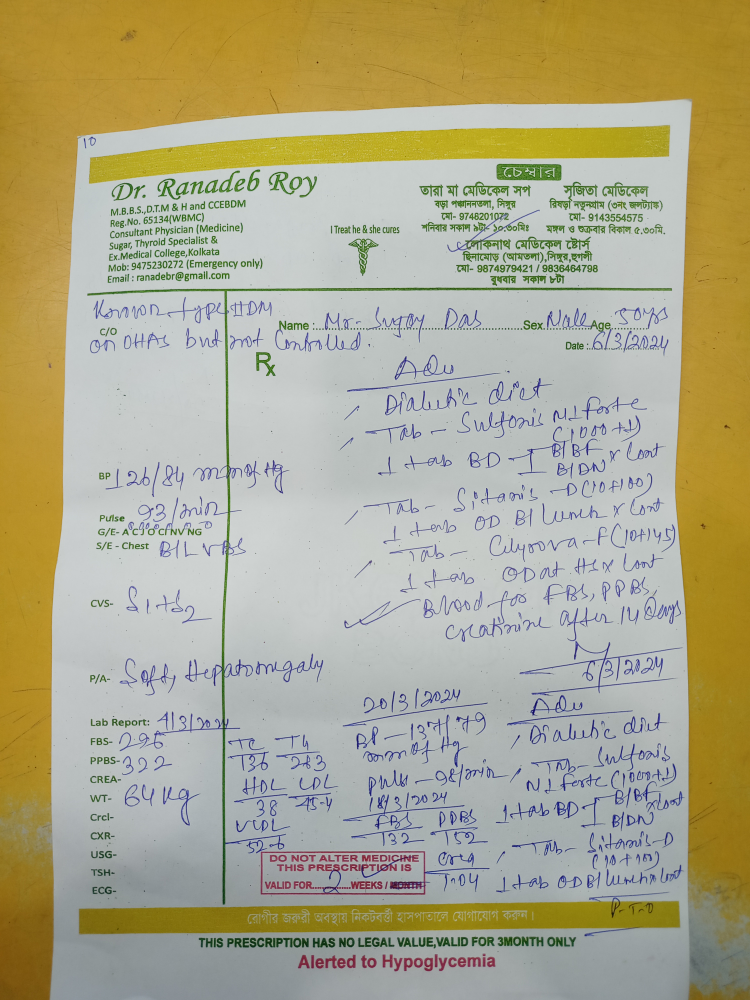 10
Dr. Ranadeb Roy
M.B.B.S.,D.T.M & H and CCEBDM
Reg.No. 65134(WBMC)
Consultant Physician (Medicine)
Sugar, Thyroid Specialist &
Ex.Medical College,Kolkata
Mob: 9475230272 (Emergency only)
Email : ranadebr@gmail.com
I Treat he & she cures
চেম্বার
তারা মা মেডিকেল সপ
বড়া পঞ্চাননতলা, সিঙ্গুর
মো- 9748201072
শনিবার সকাল ৯টা- ১০.৩০মিঃ
সুজিতা মেডিকেল
রিষড়া নতুনগ্রাম (৩নং জলট্যাঙ্ক)
মো- 9143554575
মঙ্গল ও শুক্রবার বিকাল ৫.৩০মি.
লোকনাথ মেডিকেল ষ্টোর্স
ছিনামোড় (আমতলা),সিঙ্গুর,হুগলী
মো- 9874979421 / 9836464798
বুধবার সকাল ৮টা
Known type II DM
C/O
on OHAs but not Controlled.
Name : Mr. Sujoy Das Sex Male Age 50yrs
Date : 6/3/2024
Rx
Adv
Diabetic diet
Tab - Sulfonis M1 Forte
(1000+1)
1 tab BD - 1 B/BF x Cont
B/DN
Tab - Sitanis -D (10+100)
1 tab OD B/Lunch x Cont
Tab - -F (10+145)
1 tab OD at HS x Cont
Blood for FBS, PPBS,
Creatinine after 14 Days
6/3/2024
BP 126/84 mm of Hg
Pulse 93/min
G/E- A C J O CI NV NG
S/E - Chest B/L VBS
CVS- S1+S2
P/A- Soft, Hepatomegaly
Lab Report: 4/3/2024
FBS- 296
PPBS- 322
CREA-
WT- 64 Kg
Crcl-
CXR-
USG-
TSH-
ECG-
TC TG
136 263
HDL LDL
38 45.4
VLDL
52.6
20/3/2024
BP - 137/79
mm of Hg
Pulse - 98/min
18/3/2024
FBS PPBS
132 152
Crea
1.04
Adv
Diabetic diet
Tab - Sulfonis
M1 Forte (1000+1)
1 tab BD - 1 B/BF x Cont
B/DN
Tab - Sitanis-D
(10+100)
1 tab OD B/Lunch x Cont
P.T.O
DO NOT ALTER MEDICINE
THIS PRESCRIPTION IS
VALID FOR 2 WEEKS / MONTH
রোগীর জরুরী অবস্থায় নিকটবর্তী হাসপাতালে যোগাযোগ করুন।
THIS PRESCRIPTION HAS NO LEGAL VALUE,VALID FOR 3MONTH ONLY
Alerted to Hypoglycemia